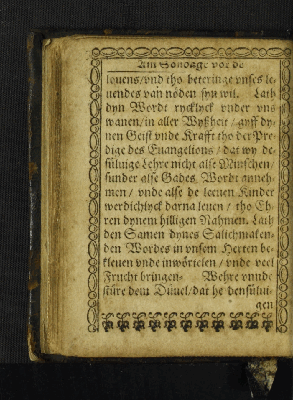 Am Sondage vor de
leuens / vnd tho beteringe vnses le-
uendes van nöden syn wil. Lath
dyn Wordt rycklyck vnder vns
wanen / in aller Wyßheit / gyff dy-
nen Geist vnde Krafft tho der Pre-
dige des Euangelions / dat wy de-
süluige Lehre nicht alse Minschen /
sunder alse Gades Wordt anneh-
men / vnde alse de leeuen Kinder
werdichlyck darna leuen / tho Eh-
ren dynem hilligen Nahmen. Lath
den Samen dynes Salichmaken-
den Wordes in vnsem Herten be-
kleuen vnde inwörtelen / vnde veel
Frucht bringen. Wehre vnnde
stüre dem Düuel / dat he densülui-
gen